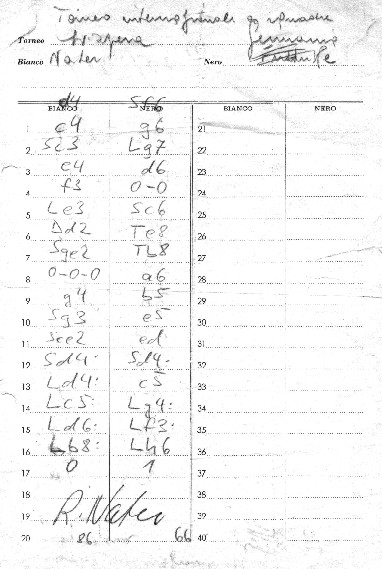 Torneo internazionale a squadre
Torneo
Bianco Nater Nero
d4 Sf6
BIANCO NERO BIANCO NERO
1 c4 g6 21
2 Sc3 Lg7 22
3 e4 d6 23
4 f3 0-0 24
5 Le3 Sc6 25
6 Dd2 Te8 26
7 Sge2 Tb8 27
8 0-0-0 a6 28
9 g4 b5 29
10 Sg3 e5 30
11 Sce2 ed 31
12 Sd4: Sd4: 32
13 Ld4: c5 33
14 Lc5: Lg4: 34
15 Ld6: Lf3: 35
16 Lb8: Lh6 36
17 0 1 37
18 38
19 R. Nater 39
20 86 66 40